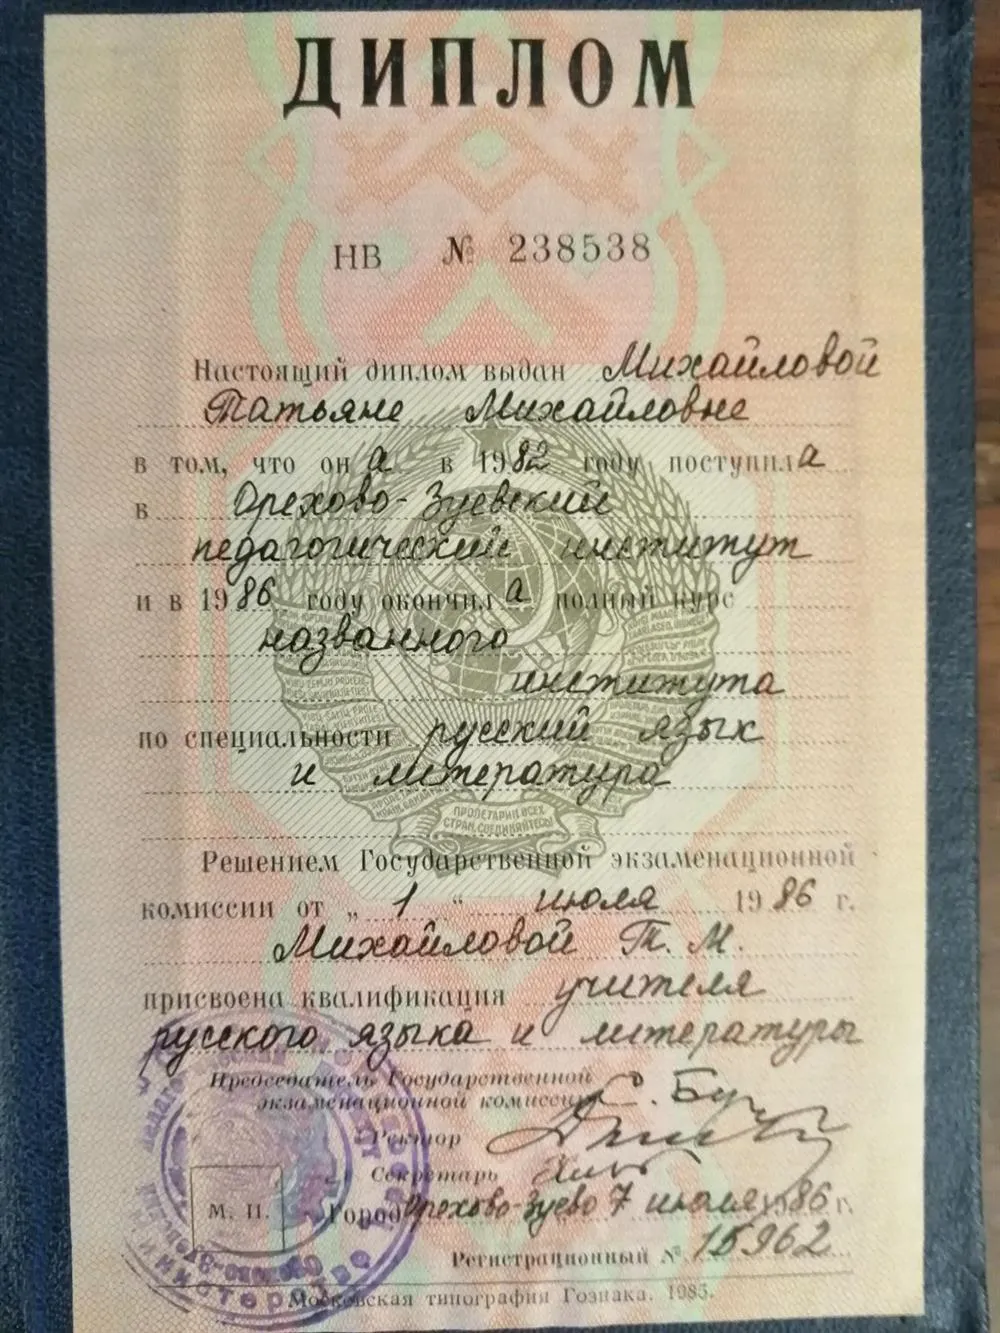 ДИПЛОМ
НВ № 238538
Настоящий диплом выдан Михайловой
Татьяне Михайловне
в том, что он а в 1982 году поступила
в Орехово-Зуевский
педагогический институт
и в 1986 году окончила полный курс
названного
института
по специальности русский язык
и литература
ПРОЛЕТАРИИ ВСЕХ
СТРАН, СОЕДИНЯЙТЕСЬ!
Решением Государственной экзаменационной
комиссии от „ 1 “ июля 1986 г.
Михайловой Т. М.
присвоена квалификация учителя
русского языка и литературы
Председатель Государственной
экзаменационной комиссии
Ректор
Секретарь
М. П. Город Орехово-Зуево 7 июля 1986 г.
Регистрационный № 15962
Московская типография Гознака. 1985.